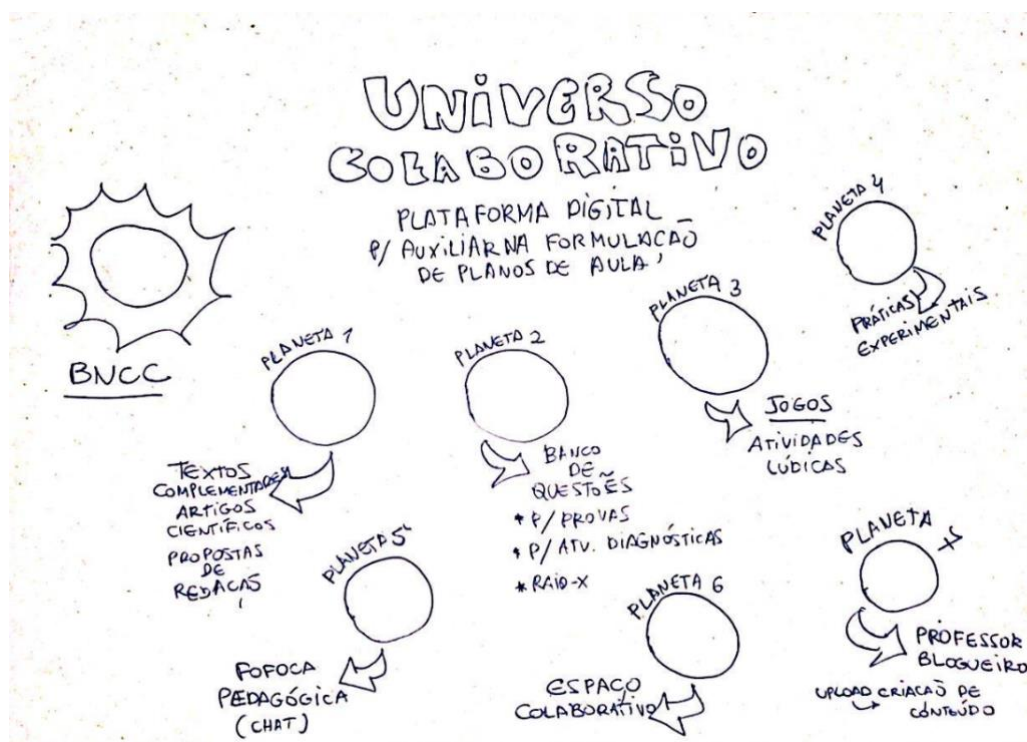 UNIVERSO
COLABORATIVO
PLATAFORMA DIGITAL
P/ AUXILIAR NA FORMULAÇÃO
DE PLANOS DE AULA
BNCC
PLANETA 1
TEXTOS
COMPLEMENTARES
ARTIGOS
CIENTÍFICOS
PROPOSTAS
DE
REDAÇÃO
PLANETA 2
BANCO
DE
QUESTÕES
* P/ PROVAS
* P/ ATV. DIAGNÓSTICAS
* RAIO-X
PLANETA 3
JOGOS
ATIVIDADES
LÚDICAS
PLANETA 4
PRÁTICAS
EXPERIMENTAIS
PLANETA 5
FOFOCA
PEDAGÓGICA
(CHAT)
PLANETA 6
ESPAÇO
COLABORATIVO
PLANETA
PROFESSOR
BLOGUEIRO
UPLOAD CRIAÇÃO DE
CONTEÚDO